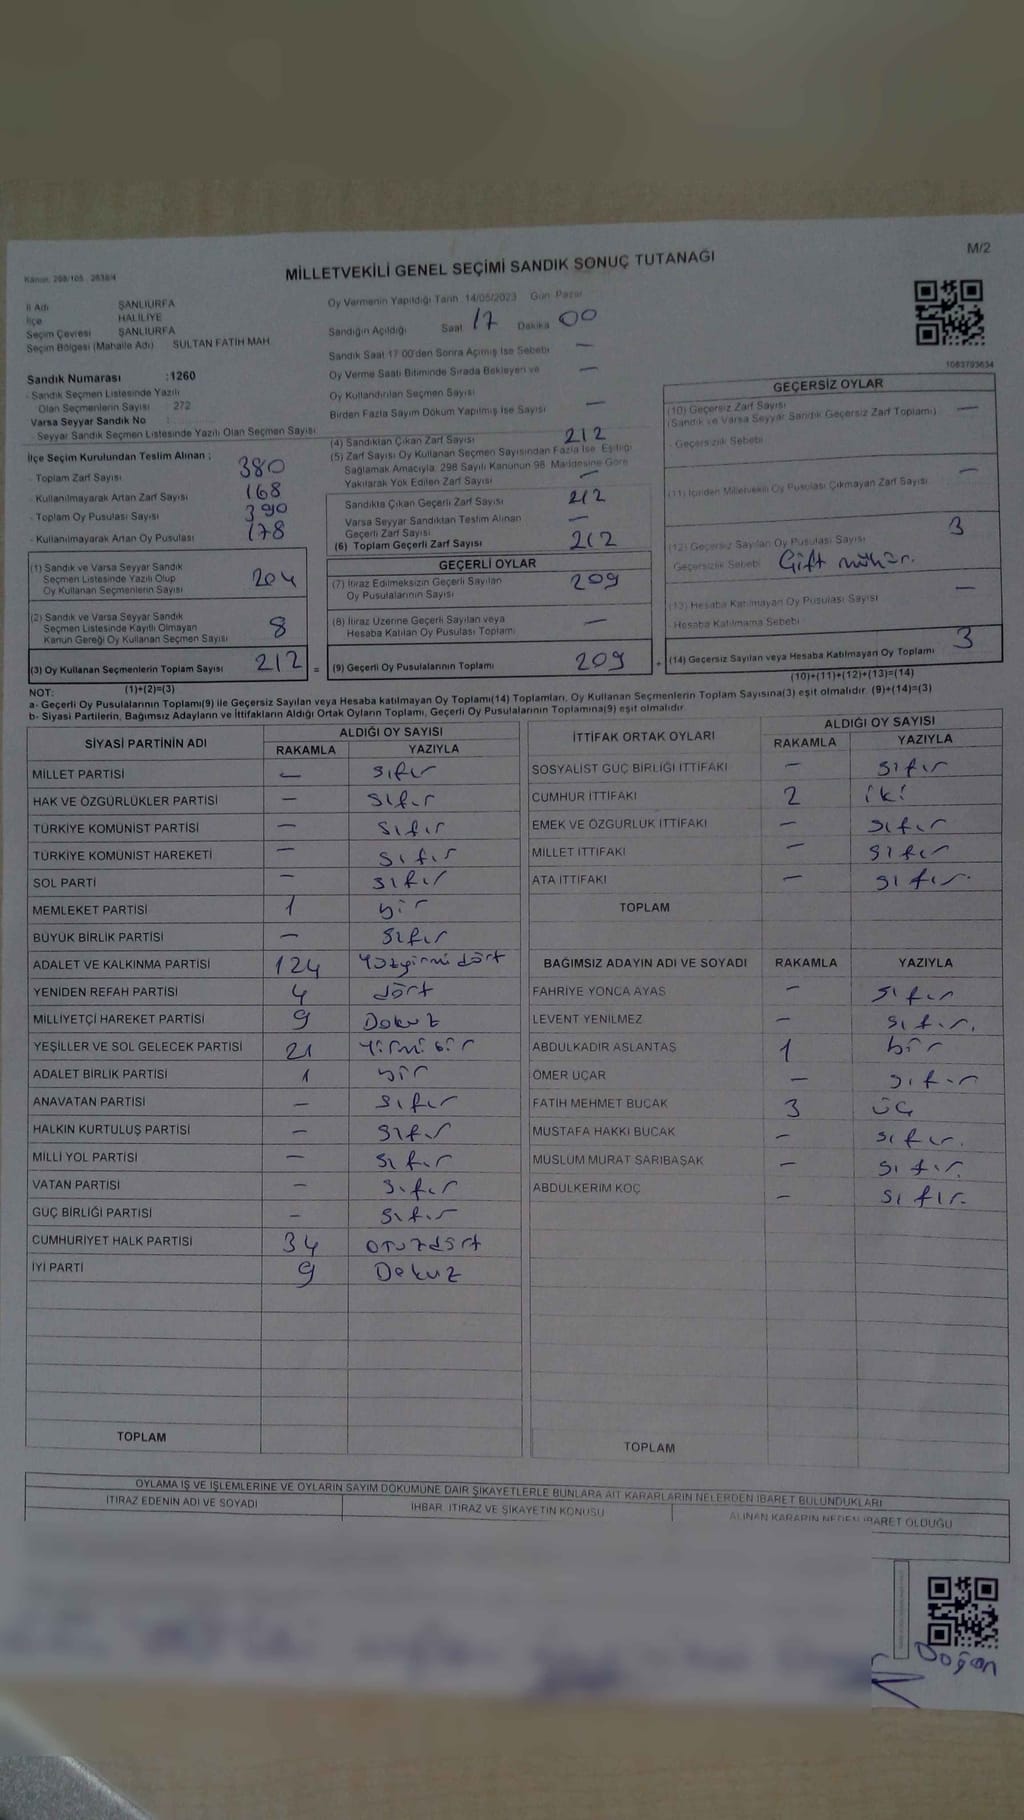 M/2
Kanun: 298/105 2839/4
MİLLETVEKİLİ GENEL SEÇİMİ SANDIK SONUÇ TUTANAĞI
İl Adı ŞANLIURFA
İlçe HALİLİYE
Seçim Çevresi ŞANLIURFA
Seçim Bölgesi (Mahalle Adı) SULTAN FATİH MAH
Sandık Numarası :1260
- Sandık Seçmen Listesinde Yazılı
Olan Seçmenlerin Sayısı 272
Varsa Seyyar Sandık No :
- Seyyar Sandık Seçmen Listesinde Yazılı Olan Seçmen Sayısı
İlçe Seçim Kurulundan Teslim Alınan ;
- Toplam Zarf Sayısı 380
- Kullanılmayarak Artan Zarf Sayısı 168
- Toplam Oy Pusulası Sayısı 390
- Kullanılmayarak Artan Oy Pusulası 178
(1) Sandık ve Varsa Seyyar Sandık
Seçmen Listesinde Yazılı Olup
Oy Kullanan Seçmenlerin Sayısı 204
(2) Sandık ve Varsa Seyyar Sandık
Seçmen Listesinde Kayıtlı Olmayan
Kanun Gereği Oy Kullanan Seçmen Sayısı 8
(3) Oy Kullanan Seçmenlerin Toplam Sayısı 212 =
Oy Vermenin Yapıldığı Tarih 14/05/2023 Gün Pazar
Sandığın Açıldığı Saat 17 Dakika 00
Sandık Saat 17 00'den Sonra Açımış İse Sebebi —
Oy Verme Saati Bitiminde Sırada Bekleyen ve —
Oy Kullandırılan Seçmen Sayısı
Birden Fazla Sayım Döküm Yapılmış İse Sayısı —
(4) Sandıktan Çıkan Zarf Sayısı 212
(5) Zarf Sayısı Oy Kullanan Seçmen Sayısından Fazla İse Eşitliği
Sağlamak Amacıyla 298 Sayılı Kanunun 98. Maddesine Göre
Yakılarak Yok Edilen Zarf Sayısı —
Sandıkta Çıkan Geçerli Zarf Sayısı 212
Varsa Seyyar Sandıktan Teslim Alınan —
Geçerli Zarf Sayısı
(6) Toplam Geçerli Zarf Sayısı 212
GEÇERLİ OYLAR
(7) İtiraz Edilmeksizin Geçerli Sayılan 209
Oy Pusulalarının Sayısı
(8) İtiraz Üzerine Geçerli Sayılan veya —
Hesaba Katılan Oy Pusulası Toplamı
(9) Geçerli Oy Pusulalarının Toplamı 209 +
1083793634
GEÇERSİZ OYLAR
(10) Geçersiz Zarf Sayısı —
(Sandık ve Varsa Seyyar Sandık Geçersiz Zarf Toplamı)
- Geçersizlik Sebebi
(11) İçinden Milletvekili Oy Pusulası Çıkmayan Zarf Sayısı —
(12) Geçersiz Sayılan Oy Pusulası Sayısı 3
Geçersizlik Sebebi Çift mühür.
(13) Hesaba Katılmayan Oy Pusulası Sayısı —
- Hesaba Katılmama Sebebi
(14) Geçersiz Sayılan veya Hesaba Katılmayan Oy Toplamı 3
NOT: (1)+(2)=(3) (10)+(11)+(12)+(13)=(14)
a- Geçerli Oy Pusulalarının Toplamı(9) ile Geçersiz Sayılan veya Hesaba katılmayan Oy Toplamı(14) Toplamları, Oy Kullanan Seçmenlerin Toplam Sayısına(3) eşit olmalıdır. (9)+(14)=(3)
b- Siyasi Partilerin, Bağımsız Adayların ve İttifakların Aldığı Ortak Oyların Toplamı, Geçerli Oy Pusulalarının Toplamına(9) eşit olmalıdır
SİYASİ PARTİNİN ADI ALDIĞI OY SAYISI
RAKAMLA YAZIYLA
MİLLET PARTİSİ — sıfır
HAK VE ÖZGÜRLÜKLER PARTİSİ — sıfır
TÜRKİYE KOMÜNİST PARTİSİ — sıfır
TÜRKİYE KOMÜNİST HAREKETİ — sıfır
SOL PARTİ — sıfır
MEMLEKET PARTİSİ 1 bir
BÜYÜK BİRLİK PARTİSİ — sıfır
ADALET VE KALKINMA PARTİSİ 124 Yüzyirmi dört
YENİDEN REFAH PARTİSİ 4 dört
MİLLİYETÇİ HAREKET PARTİSİ 9 Dokuz
YEŞİLLER VE SOL GELECEK PARTİSİ 21 Yirmi bir
ADALET BİRLİK PARTİSİ 1 bir
ANAVATAN PARTİSİ — sıfır
HALKIN KURTULUŞ PARTİSİ — sıfır
MİLLİ YOL PARTİSİ — sıfır
VATAN PARTİSİ — sıfır
GÜÇ BİRLİĞİ PARTİSİ — sıfır
CUMHURİYET HALK PARTİSİ 34 otuzdört
İYİ PARTİ 9 Dokuz
TOPLAM
İTTİFAK ORTAK OYLARI ALDIĞI OY SAYISI
RAKAMLA YAZIYLA
SOSYALİST GÜÇ BİRLİĞİ İTTİFAKI — sıfır
CUMHUR İTTİFAKI 2 iki
EMEK VE ÖZGÜRLÜK İTTİFAKI — sıfır
MİLLET İTTİFAKI — sıfır
ATA İTTİFAKI — sıfır.
TOPLAM
BAĞIMSIZ ADAYIN ADI VE SOYADI RAKAMLA YAZIYLA
FAHRİYE YONCA AYAS — sıfır
LEVENT YENİLMEZ — sıfır.
ABDULKADİR ASLANTAŞ 1 bir
ÖMER UÇAR — sıfır
FATİH MEHMET BUCAK 3 üç
MUSTAFA HAKKI BUCAK — sıfır.
MÜSLÜM MURAT SARIBAŞAK — sıfır.
ABDULKERİM KOÇ — sıfır.
TOPLAM
OYLAMA İŞ VE İŞLEMLERİNE VE OYLARIN SAYIM DÖKÜMÜNE DAİR ŞİKAYETLERLE BUNLARA AİT KARARLARIN NELERDEN İBARET BULUNDUKLARI
İTİRAZ EDENİN ADI VE SOYADI İHBAR İTİRAZ VE ŞİKAYETİN KONUSU ALINAN KARARIN NEDEN İBARET OLDUĞU
Doğan